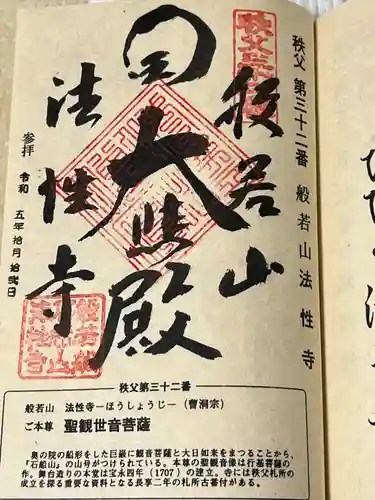 秩父 第三十二番 般若山 法性寺
般若山
大悲殿
法性寺
参拝 令和 五年拾月
秩父第三十二番
般若山 法性寺―ほうしょうじ―（曹洞宗）
ご本尊 聖観世音菩薩
奥の院の船形をした巨巌に観音菩薩と大日如来をまつることから、
「石船山」の山号がつけられている。本尊の聖観音像は行基菩薩の
作。舞台造りの本堂は宝永四年（1707）の建立。寺には秩父札所の
成立を探る重要な資料となる長享二年の札所古番付がある。